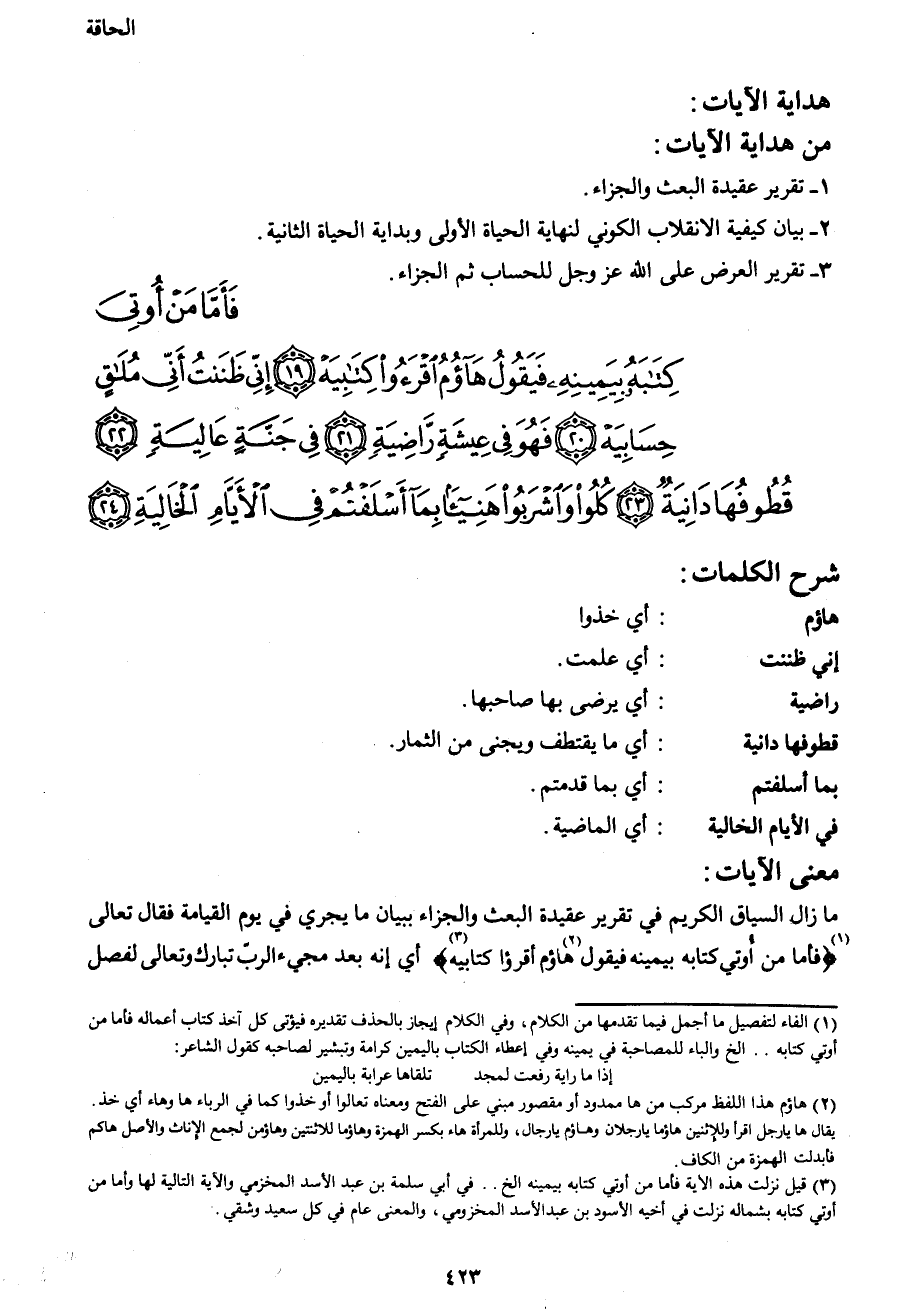 الحاقة
هداية الآيات :
من هداية الآيات :
١ـ تقرير عقيدة البعث والجزاء .
٢ـ بيان كيفية الانقلاب الكوني لنهاية الحياة الأولى وبداية الحياة الثانية .
٣ـ تقرير العرض على الله عز وجل للحساب ثم الجزاء .
فَأَمَّا مَنْ أُوتِىَ
كِتَٰبَهُۥ بِيَمِينِهِۦ فَيَقُولُ هَآؤُمُ ٱقْرَءُوا۟ كِتَٰبِيَهْ ١٩ إِنِّى ظَنَنتُ أَنِّى مُلَٰقٍ
حِسَابِيَهْ ٢٠ فَهُوَ فِى عِيشَةٍ رَّاضِيَةٍ ٢١ فِى جَنَّةٍ عَالِيَةٍ ٢٢
قُطُوفُهَا دَانِيَةٌ ٢٣ كُلُوا۟ وَٱشْرَبُوا۟ هَنِيٓـًٔۢا بِمَآ أَسْلَفْتُمْ فِى ٱلْأَيَّامِ ٱلْخَالِيَةِ ٢٤
شرح الكلمات :
هاؤم : أي خذوا
إني ظننت : أي علمت .
راضية : أي يرضى بها صاحبها .
قطوفها دانية : أي ما يقتطف ويجنى من الثمار .
بما أسلفتم : أي بما قدمتم .
في الأيام الخالية : أي الماضية .
معنى الآيات :
ما زال السياق الكريم في تقرير عقيدة البعث والجزاء ببيان ما يجري في يوم القيامة فقال تعالى
(١) ﴿فأما من أُوتي كتابه بيمينه فيقول (٢) هاؤم أقرؤا كتابيه (٣)﴾ أي إنه بعد مجيء الربّ تبارك وتعالى لفصل
(١) الفاء لتفصيل ما أجمل فيما تقدمها من الكلام ، وفي الكلام إيجاز بالحذف تقديره فيؤتى كل آخذ كتاب أعماله فأما من
أوتي كتابه . . الخ والباء للمصاحبة في يمينه وفي إعطاء الكتاب باليمين كرامة وتبشير لصاحبه كقول الشاعر :
إذا ما راية رفعت لمجد تلقاها عرابة باليمين
(٢) هاؤم هذا اللفظ مركب من ها ممدود أو مقصور مبني على الفتح ومعناه تعالوا أو خذوا كما في الرباء ها وهاء أي خذ .
يقال ها يارجل اقرأ وللإثنين هاؤما يارجلان وهاؤم يارجال ، وللمرأة هاء بكسر الهمزة وهاؤما للاثنتين وهاؤمن لجمع الإناث والأصل هاكم
فأبدلت الهمزة من الكاف .
(٣) قيل نزلت هذه الآية فأما من أوتي كتابه بيمينه الخ . . في أبي سلمة بن عبد الأسد المخزمي والآية التالية لها وأما من
أوتي كتابه بشماله نزلت في أخيه الأسود بن عبدالأسد المخزومي ، والمعنى عام في كل سعيد وشقي .
٤٢٣